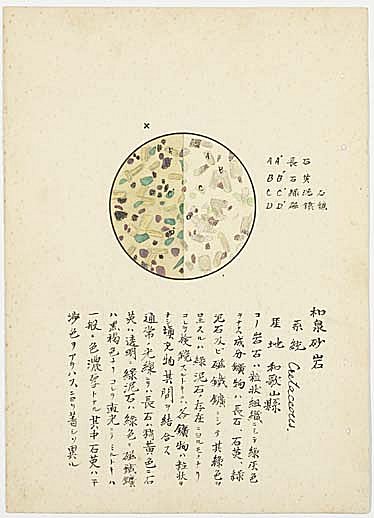 A A' 長石
B B' 石英
C C' 緑泥石
D D' 磁鐵鑛
和泉砂岩
系統 Cretaceous.
産地 和歌山縣
コノ岩石ハ粒狀組織ニシテ緑灰色
ヲナス成分鑛物ハ長石、石英、緑
泥石及ビ磁鐵鑛ニシテ其緑色ヲ
呈スルハ緑泥石ノ存在ニヨルモノナリ
コレヲ検鏡スルトキハ各鑛物ハ粒狀
ナシ填充物其間ヲ結合ス
通常ノ光線ニテハ長石ハ稍黄色ニ石
英ハ透明ニ緑泥石ハ緑色、磁鐵鑛
ハ黒褐色ナリコレヲ直光ニテミルトキハ
一般ニ色濃厚トナル其中石英ハ干
渉色ヲアラハスニヨリ著シク異ル